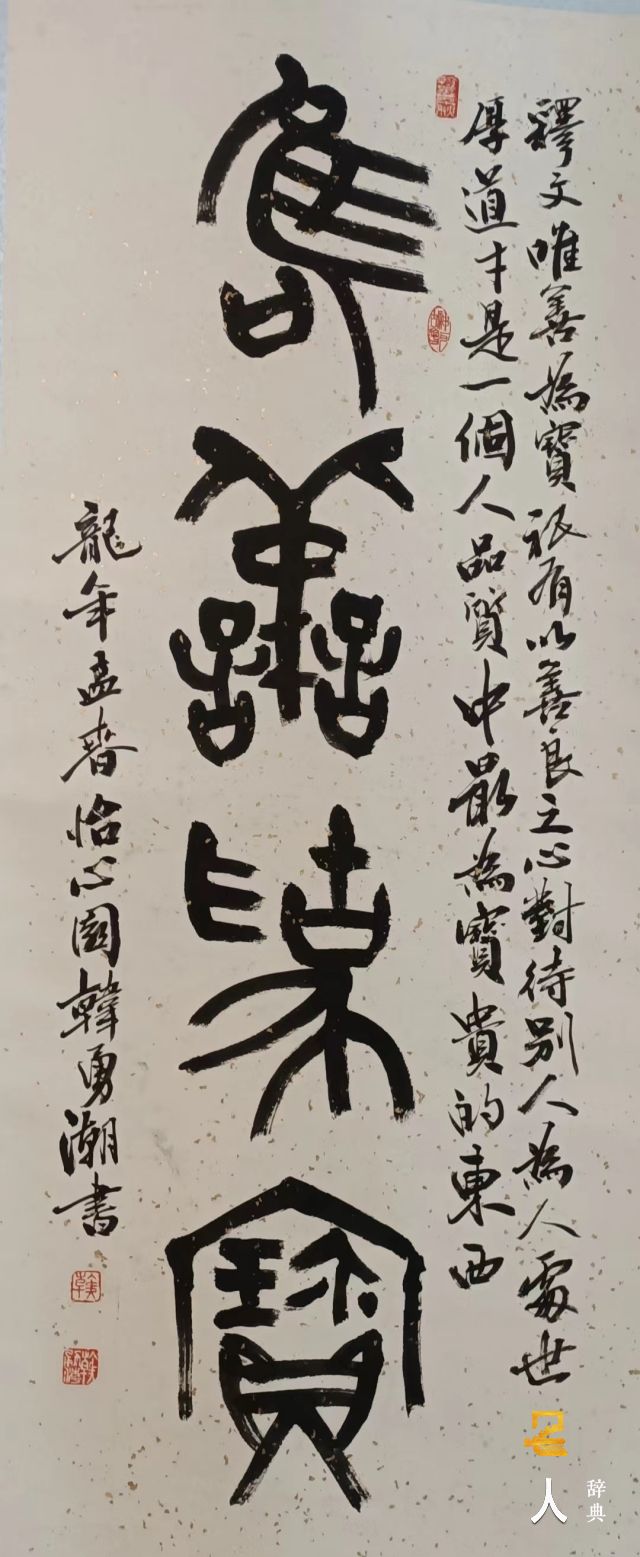 釋文唯善為寶祇有以善良之心對待別人為人處世
厚道才是一個人品質中最為寶貴的東西
唯善為寶
龍年孟春怡心園韓勇潮書
名人
辞典